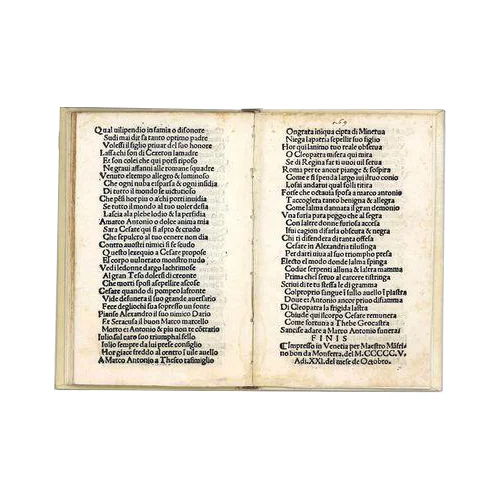 Qual uilipendio infamia o disonore
Sudi mai dir fa tanto optimo padre
Volessi il figlio priuar del suo honore
Lassa chi son di Cezeron la madre
Et son colei che qui porsi riposo
Ne graui affanni alle romane squadre
Venuto el tempo allegro & luminoso
Che ogni nuba espassa & ogni insidia
Di tutto il mondo se uictorioso
Che piu hor piu o achi porti inuidia
Se tutto il mondo al tuo uoler
Lascia ala plebe lodio & la perfidia
Marco Antonio o dolce anima mia
Sara Cesare qui si aspro & crudo
Che sepulcro al tuo cenere non dia
Contro nostri nimici fi se scudo
Questo lexequio a Cesare propose
El corpo uulnerato monstro nudo
Vedi le donne dargo lachrimose
Al gran Teseo dolersi de creonte
Che morti sposi aspellire ascose
Cesare quando di pompeo lafronte
Vide desunera il suo grande auersario
Fece degli occhi sua sopresso un fonte
Pianse Alexandro il suo nimico Dario
Et Seracusa il buon Marco marcello
Morto e Antonio & piu non te contrario
Iulio sul caro suo triumphal fello
Iulio sempre da lui prese consiglio
Hor giace freddo al centro
A Marco Antonio a Theseo rasimiglio
O ngrata iniqua cipta di Minerua
Niega la patria sepellir suo figlio
Hor qui lanimo tuo reale obserua
O Cleopatra misera qui mira
Se di Regina far ti uuoi uil serua
Roma per te ancor piange & sospira
Come e si spenda largo iui il tuo conio
Losai andatui qual folli titira
Forse che octauia sposa a marco antonio
Taccoglera tanto benigna & allegra
Come lalma dannata il gran demonio
Vna furia para peggio che al segra
Con lanfere corona ancor accesa
Isui cagion disarla obscura & negra
Chi ti disendera di tanta offesa
Cesare in Alexandria
Per darti uiua al suo triompho presa
Electo el modo donde lalma spinga
Codue serpenti alluna & laltra mamma
Prima che setuo al carcere tistringa
Scriui di te tu stessa le di gramma
Col proprio sangue sullo auello
Doue et Antonio ancor priuo disiamma
Di Cleopatra la frigida lastra
Chiude qui il corpo Cesare remunera
Come fortuna a Thebe Geocastra
Sancise asare a Marco Antonio funera
FINIS
Impresso in Venetia per Maestro Māfrino
bon da Monferra. del M.CCCCC.V.
Adi.XXI. del mese de Octobro.